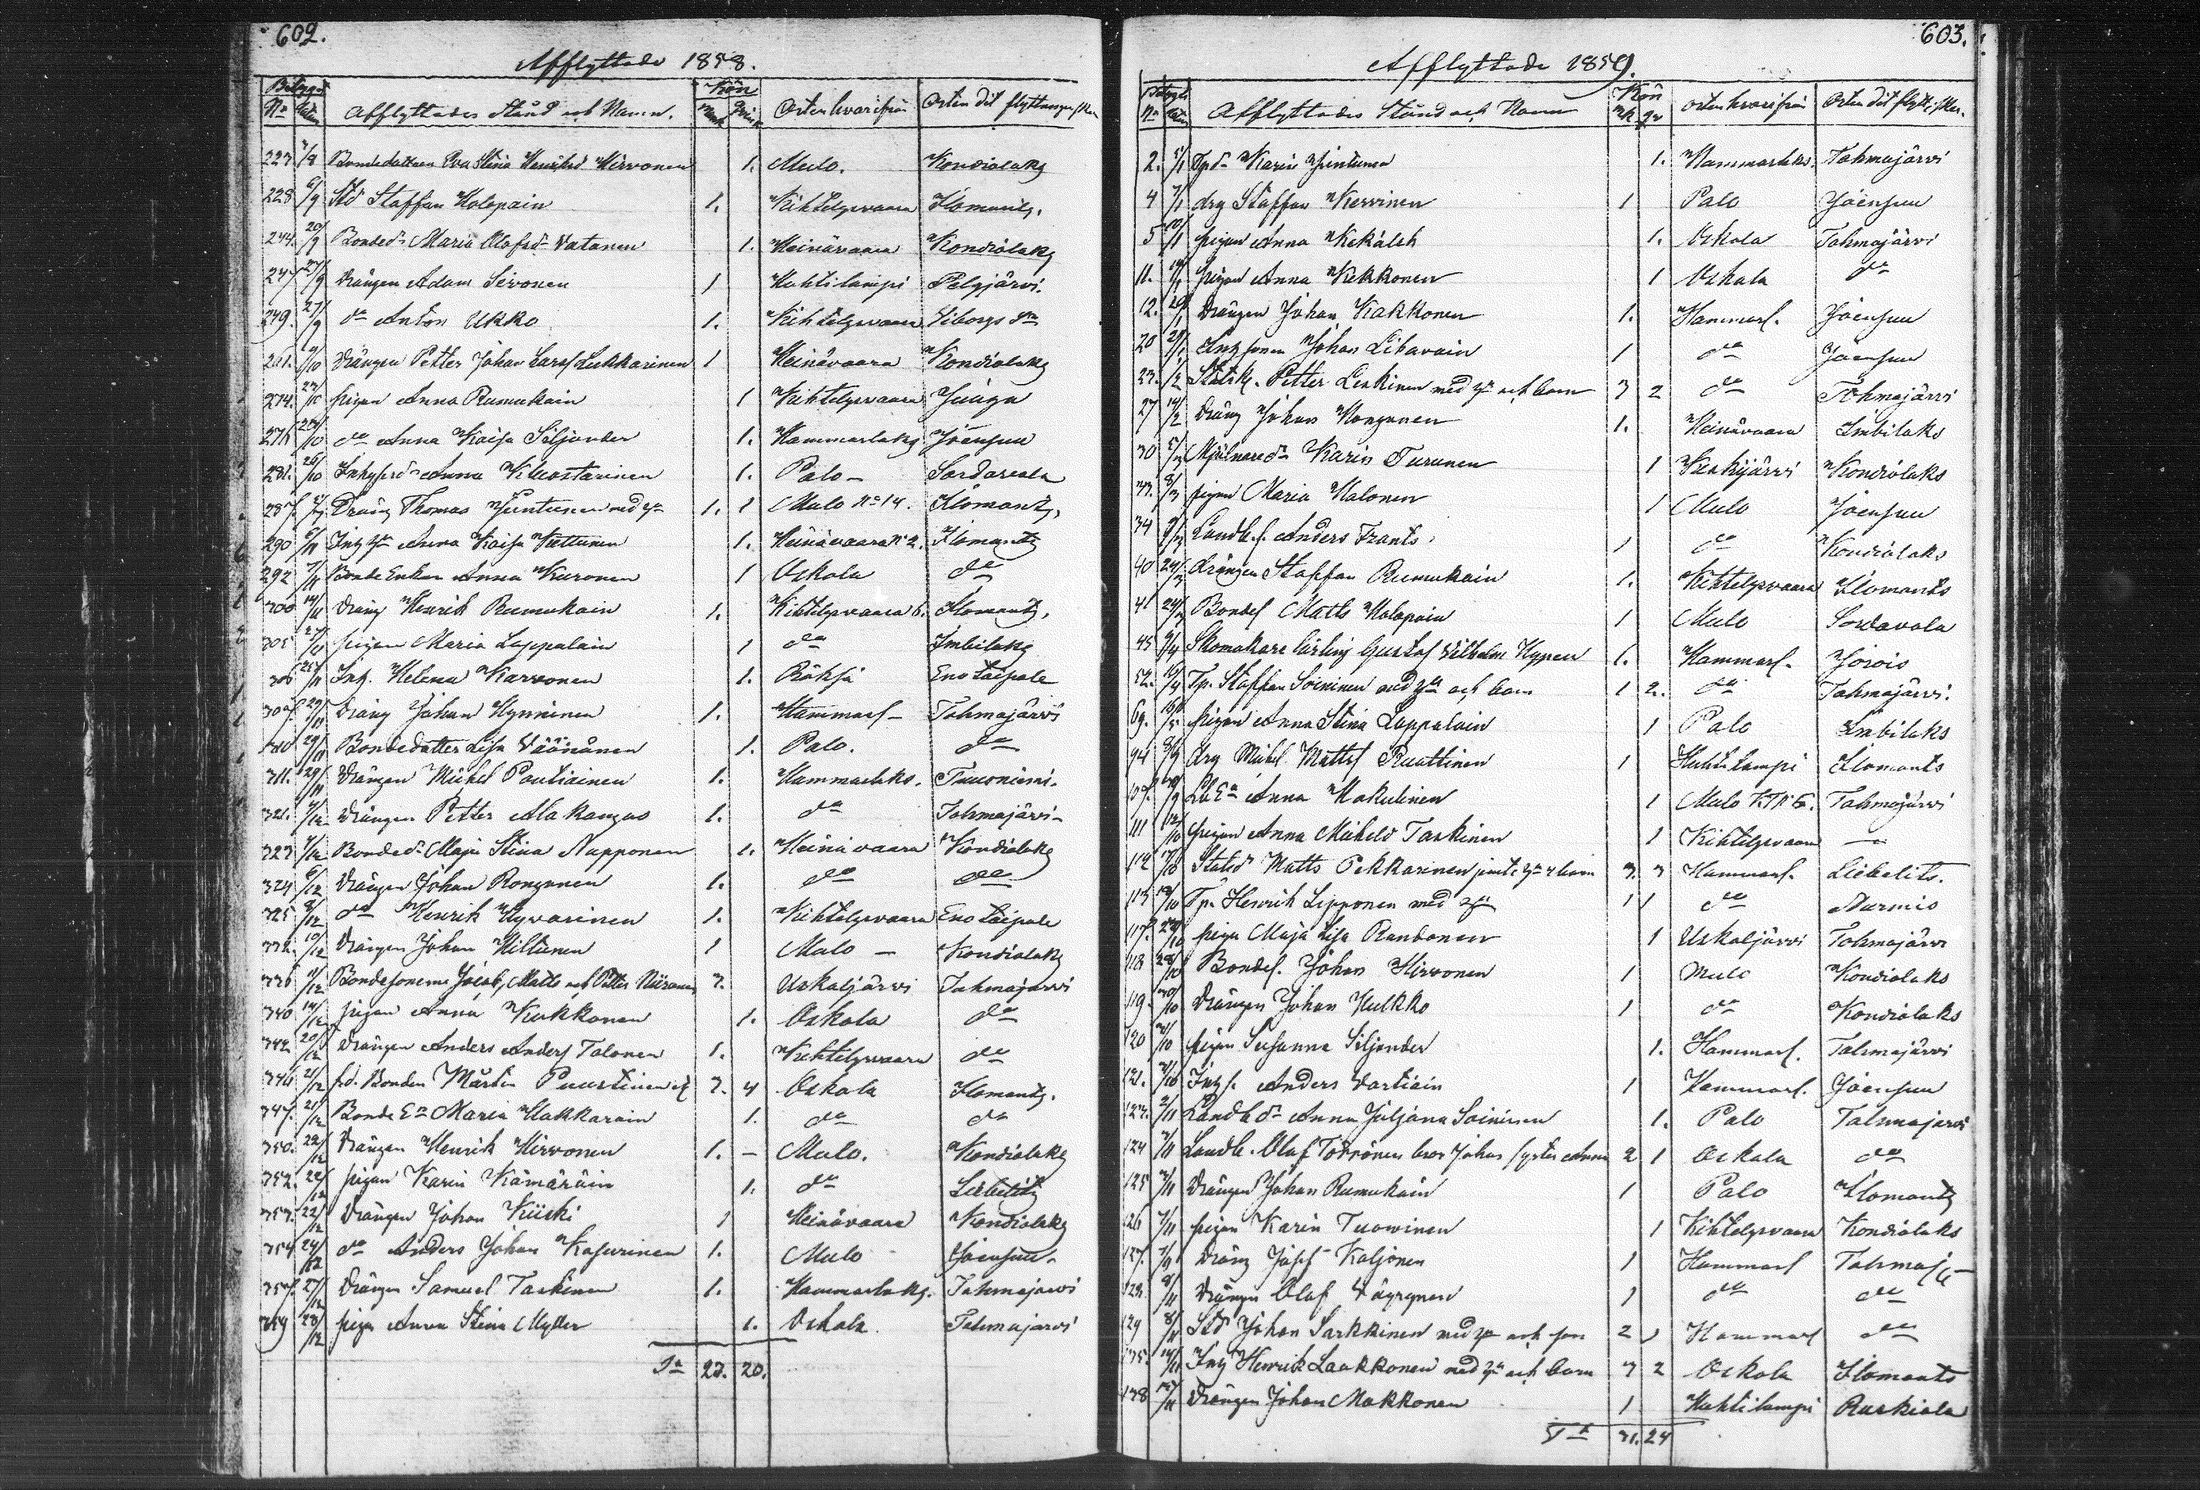 602.
Afflyttade 1858.
Betyg Kön
No Afflyttades Stånd och Namn. Mank Qvink Orten hvarifrån Orten dit flyttningen sker
227 Bondedottren Eva Stina Henriksd Hirvonen 1. Mulo. Kondiolaks
228 6/9 Std Staffan Holopain 1. Kihtelysvaara Ilomants.
244. 20/9 Bonded. Maria Olofsd. Vatanen 1. Heinävaara Kondiolaks
247 27/9 Drängen Adam Sivonen 1 Huhtilampi Pelgjärvi.
249. 27/9 do Anton Ukko 1. Kihtelysvaara Viborgs
261. 9/10 Drängen Petter Johan Larsf Leskkarinen 1 Heinävaara Kondiolaks
274. pigan Anna Rumukain 1 Kihtelysvaara Juuga
276 do Anna Kaisa Siljander 1. Hammarlaks Joensuu
281. 26/10 Anna Kluostarinen 1. Palo – Sordavala
287. Dräng Thomas Juntunen med 1. 1 Mulo No 14. Ilomants.
290 6/11 Anna Kaisa 1. Heinävaara No 2. Ilomants
292 7/11 Bonde Enkan Anna Kuronen 1 Oskola do
300 14/11 Dräng Henrik Rumukain 1. Kihtelysvaara 6. Ilomants.
305 pigan Maria Lappalain 1 do Imbilaks
306 25/11 Inh. Helena Karvonen 1. Röksä Eno Taipale
307. 29/11 Dräng Johan Hynninen 1. Hammarl – Tohmajärvi
29/11 Bondedotter Lisa Väänänen 1. Palo. do
311. 29/11 Drängen Mickel Pautiainen 1. Hammarlaks. Tuusniemi.
321. Drängen Petter Alakangas 1. do Tohmajärvi –
323 Bonded. Maja Stina Nupponen 1. Heinävaara Kondiolaks
324 6/12 Drängen Johan Ronganen 1. do do
325 8/12 do Henrik Hyvärinen 1. Kihtelysvaara Eno Taipale
332. 10/12 Drängen Johan Hiltunen 1 Mulo – Kondiolaks
336 11/12 Bondesönerne Jacob, Matts och Petter Niiranen 3. Uskaljärvi Tohmajärvi
340 14/12 pigan Anna Kukkonen 1. Oskola do
342 20/12 Drängen Anders Andersf Tolonen 1. Kihtelysvaara do
346 21/12 f.d. Bonden Mårten Puustinen 3. 4 Oskola Ilomants.
347. 21/12 Bonde En Maria Hakkarain 1. do do
350. 22/12 Drängen Henrik Hirvonen 1. – Mulo. Kondiolaks
352. 22/12 pigan Karin Kämäräin 1. do Libelits
353. 22/12 Drängen Johan Kiiski 1 Heinävaara Kondiolaks
354 24/12 do Anders Johan Kasurinen 1. Mulo Joensuu –
357. 27/12 Drängen Samuel Taskinen 1. Hammarlaks. Tohmajärvi
359 28/12 pigan Anna Stina Myller 1. Oskola. Tohmajärvi
Sa 23. 20.
603.
Afflyttade 1859.
Betyg Kön
No Afflyttades Stånd och Namn M. Qv Orten hvarifrån Orten dit flytt. sker.
2. 5/1 Karin Juntunen 1. Hammarlaks. Tohmajärvi
4 7/1 drg Staffan Kervinen 1 Palo Joensuu
5 pigan Anna Kekäläh 1. Oskola Tohmajärvi
11. pigan Anna Kekkonen 1 Oskola do
12. Drängen Johan Kakkonen 1. Hammarl. Joensuu
20 Inh sonen Johan Litavain 1 do Joensuu
23. Petter Leskinen med och barn 3 2 do Tohmajärvi
27 14/2 Dräng Johan Honganen 1. Heinävaara Imbilaks
30 5/3 Mjölnared. Karin Turunen 1 Keskijärvi Kondiolaks
33. 8/3 pigan Maria Halonen 1 Mulo Joensuu
34 Landb.s. Anders Frants. 1 do Kondiolaks
40 24/3 Drängen Staffan Rumukain 1. Kihtelysvaara Ilomants
41 24/3 Bondes Matts Holopain 1 Mulo Sordavala
45 Skomakare lärling Gustaf Vilhelm Hypen 1. Hammarl. Jorois
52. Tp. Staffan Soininen med och barn 1 2. do Tohmajärvi.
69. pigan Anna Stina Lappalain 1 Palo Imbilaks
94 drg Mickel Mattsf Ruuttinen 1 Huhtilampi Ilomants
107. Anna Kakulinen 1 Mulo Tohmajärvi
111 pigan Anna Mickelsd Taskinen 1 Kihtelysvaara –
114 Statd Matts Pekkarinen jemte barn 3. 3 Hammarl. Libelits.
115 Tp. Henrik Lipponen med 1 1 do Nurmis
117. pigan Maja Lisa Rautonen 1 Uskaljärvi Tohmajärvi
118 28/10 Bondes. Johan Hirvonen 1 Mulo Kondiolaks
119. Drängen Johan Hulkko 1 do Kondiolaks
120 pigan Susanna Siljander 1. Hammarl. Tohmajärvi
121. Inhs. Anders Vartiain 1 Hammarl. Joensuu
123. 2/11 Landb dr Anna Juliana Soininen 1. Palo Tohmajärvi
124 Landb. Olof Torrönen bror Johan syster Anna 2 1 Oskola do
125 Drängen Johan Rumukain 1 Palo Ilomants
126 7/11 pigan Karin Tuovinen 1 Kihtelysvaara Kondiolaks
127. Dräng Josef Kaljonen 1 Hammarl Tohmaj –
128. 8/11 Drängen Olof Väyrynen 1 do do
129 8/11 Std Johan Sarkkinen med och son 2 1 Hammarl do
135. Inh Henrik Laakkonen med och barn 3 2 Oskola Ilomants
138 Drängen Johan Makkonen 1 Huhtilampi Ruskiala
Sa 31. 24